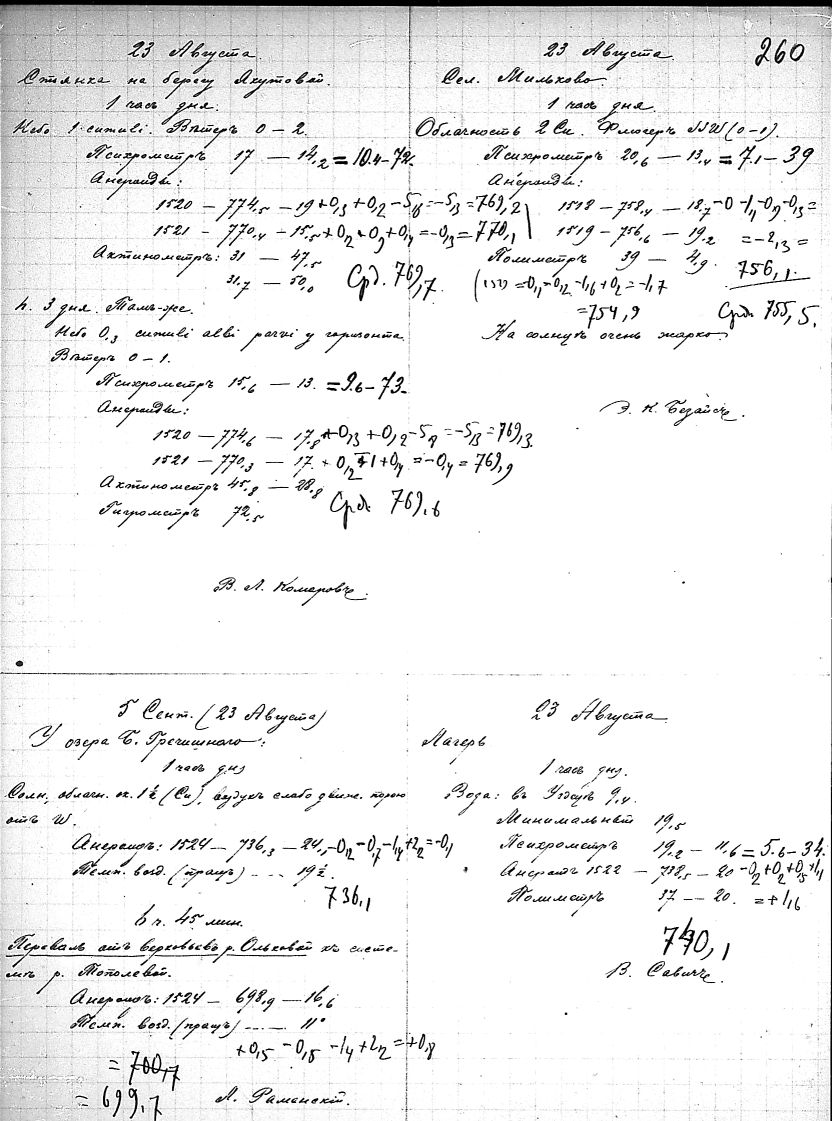 260
23 Августа.
Стоянка на берегу Якутовой.
1 часъ дня.
Небо 1 cumuli. Вѣтеръ 0 – 2.
Психрометръ 17 – 14,2 = 10.4 – 72.
Анероиды:
1520 – 774,5 – 19 + 0,3 + 0,2 – 5,8 = – 5,3 = 769,2
1521 – 770,4 – 15,5 + 0,2 – 0,9 + 0,4 = – 0,3 = 770,1
Актинометръ: 31 – 47,5
31,7 – 50,0
Срд. 769,7.
ч. 3 дня. Тамъ-же.
Небо 0,3 cumuli albi parvi у горизонта.
Вѣтеръ 0 – 1.
Психрометръ 15,6 – 13. = 9.6 – 73.
Анероиды:
1520 – 774,6 – 17,8 + 0,3 + 0,2 – 5,8 = – 5,3 = 769,3.
1521 – 770,3 – 17. + 0,2 – 1 + 0,4 = – 0,4 = 769,9
Актинометръ 45,8 – 28,8
Гигрометръ 72,5
Срд. 769,6
В. Л. Комаровъ.
23 Августа.
Сел. Мильково
1 часъ дня.
Облачность 2 Cu. Флюгеръ NNW (0 – 1).
Психрометръ 20,6 – 13,4 = 7.1 – 39
Анероиды:
1518 – 758,4 – 18,7 – 0 – 1,1 – 0,9 – 0,3 =
1519 – 756,6 – 19,2 = – 2,3 =
756,1.
Полиметръ 39 – 4,9.
= – 0,1 – 0,2 – 1,6 + 0,2 = – 1,7
= 754,9
Срд. 755,5.
На солнцѣ очень жарко.
5 Сент. (23 Августа)
У озера Б. Гречишного:
1 часъ дня
Солн., облачн. ок. 1½ (Cu), воздухъ слабо движ. порою
отъ W.
Анероидъ: 1524 – 736,3 – 24, – 0,2 – 0,7 – 1,4 + 2,2 = – 0,1
Темп. возд. (пращъ) .... 19½.
736,1
6 ч. 45 мин.
Перевалъ отъ верховьевъ р. Ольховой къ систе-
мѣ р. Тополевой.
Анероидъ: 1524 – 698,9 – 16,6
Темп. возд. (пращъ) .... 11°
+ 0,5 – 0,5 – 1,4 + 2,2 = + 0,8
= 700,7
= 699,7
23 Августа.
Лагерь
1 часъ дня.
Вода: въ 9,4.
Минимальный 19,5
Психрометръ 19,2 – 11,6 = 5.6 – 34.
Анероидъ 1522 – 738,5 – 20 – 0,2 + 0,2 + 0,5 + 1,1
Полиметръ 37 – 20. = + 1,6
740,1
В. Савичъ.